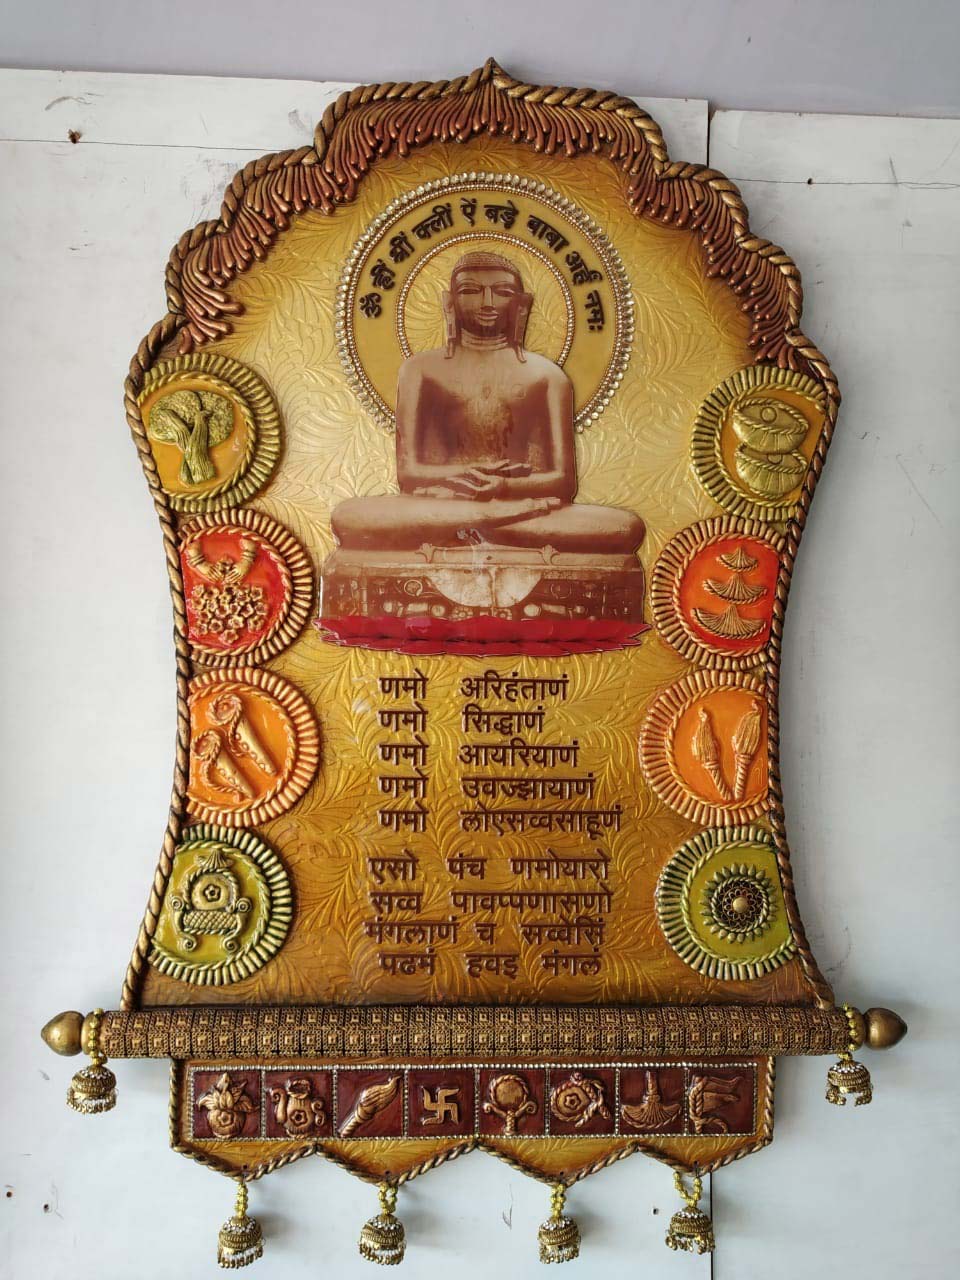 ॐ ह्रीं श्रीं क्लीं ऐं बड़े बाबा अर्हं नमः
णमो अरिहंताणं
णमो सिद्धाणं
णमो आयरियाणं
णमो उवज्झायाणं
णमो लोएसव्वसाहूणं
एसो पंच णमोयारो
सव्व पावप्पणासणो
मंगलाणं च सव्वसिं
पढमं हवइ मंगलं